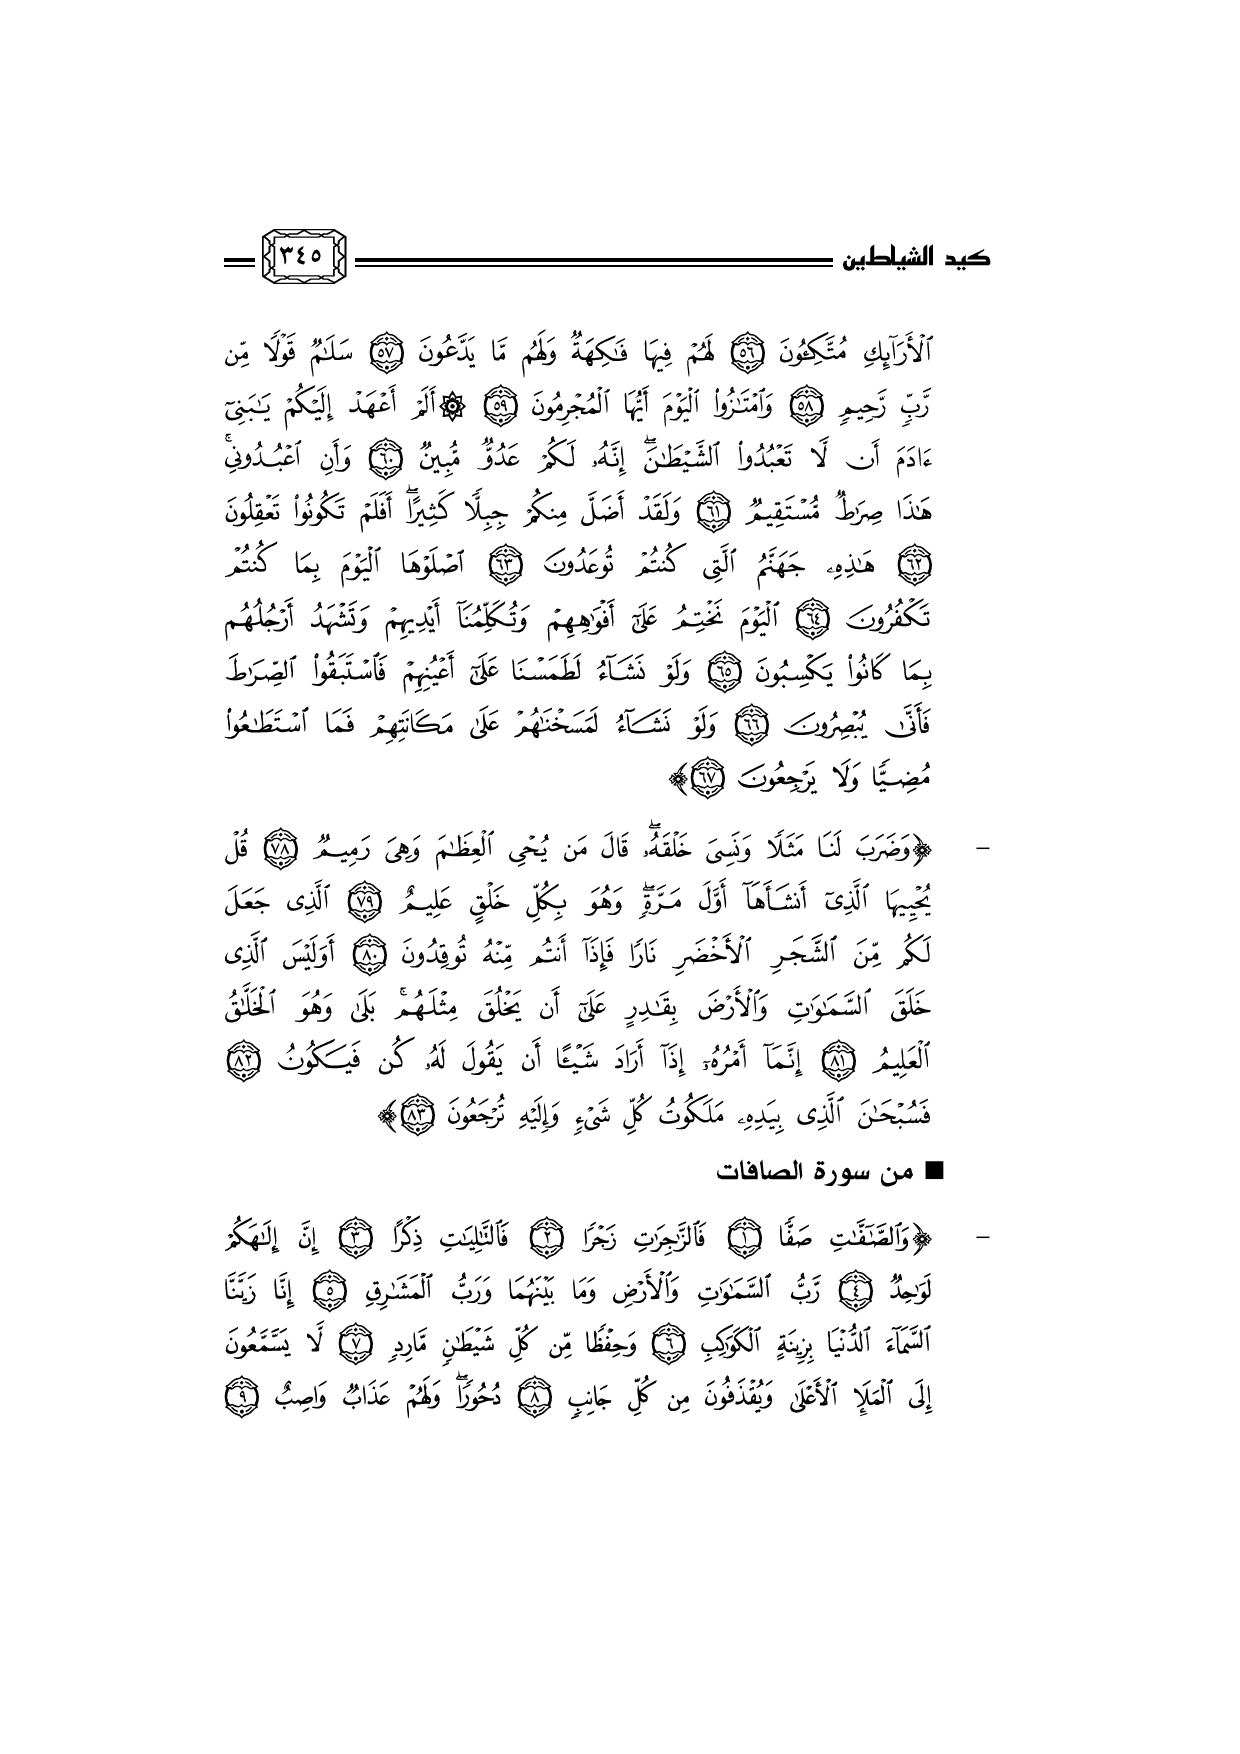 كيد الشياطين ٣٤٥
ٱلْأَرَآئِكِ مُتَّكِـُٔونَ ٥٦ لَهُمْ فِيهَا فَـٰكِهَةٌ وَلَهُم مَّا يَدَّعُونَ ٥٧ سَلَـٰمٌ قَوْلًا مِّن
رَّبٍّ رَّحِيمٍ ٥٨ وَٱمْتَـٰزُوا۟ ٱلْيَوْمَ أَيُّهَا ٱلْمُجْرِمُونَ ٥٩ ۞أَلَمْ أَعْهَدْ إِلَيْكُمْ يَـٰبَنِىٓ
ءَادَمَ أَن لَّا تَعْبُدُوا۟ ٱلشَّيْطَـٰنَ ۖ إِنَّهُۥ لَكُمْ عَدُوٌّ مُّبِينٌ ٦٠ وَأَنِ ٱعْبُدُونِى ۚ
هَـٰذَا صِرَٰطٌ مُّسْتَقِيمٌ ٦١ وَلَقَدْ أَضَلَّ مِنكُمْ جِبِلًّا كَثِيرًا ۖ أَفَلَمْ تَكُونُوا۟ تَعْقِلُونَ
٦٢ هَـٰذِهِۦ جَهَنَّمُ ٱلَّتِى كُنتُمْ تُوعَدُونَ ٦٣ ٱصْلَوْهَا ٱلْيَوْمَ بِمَا كُنتُمْ
تَكْفُرُونَ ٦٤ ٱلْيَوْمَ نَخْتِمُ عَلَىٰٓ أَفْوَٰهِهِمْ وَتُكَلِّمُنَآ أَيْدِيهِمْ وَتَشْهَدُ أَرْجُلُهُم
بِمَا كَانُوا۟ يَكْسِبُونَ ٦٥ وَلَوْ نَشَآءُ لَطَمَسْنَا عَلَىٰٓ أَعْيُنِهِمْ فَٱسْتَبَقُوا۟ ٱلصِّرَٰطَ
فَأَنَّىٰ يُبْصِرُونَ ٦٦ وَلَوْ نَشَآءُ لَمَسَخْنَـٰهُمْ عَلَىٰ مَكَانَتِهِمْ فَمَا ٱسْتَطَـٰعُوا۟
مُضِيًّا وَلَا يَرْجِعُونَ ٦٧﴾
- ﴿وَضَرَبَ لَنَا مَثَلًا وَنَسِىَ خَلْقَهُۥ ۖ قَالَ مَن يُحْىِ ٱلْعِظَـٰمَ وَهِىَ رَمِيمٌ ٧٨ قُلْ
يُحْيِيهَا ٱلَّذِىٓ أَنشَأَهَآ أَوَّلَ مَرَّةٍ ۖ وَهُوَ بِكُلِّ خَلْقٍ عَلِيمٌ ٧٩ ٱلَّذِى جَعَلَ
لَكُم مِّنَ ٱلشَّجَرِ ٱلْأَخْضَرِ نَارًا فَإِذَآ أَنتُم مِّنْهُ تُوقِدُونَ ٨٠ أَوَلَيْسَ ٱلَّذِى
خَلَقَ ٱلسَّمَـٰوَٰتِ وَٱلْأَرْضَ بِقَـٰدِرٍ عَلَىٰٓ أَن يَخْلُقَ مِثْلَهُم ۚ بَلَىٰ وَهُوَ ٱلْخَلَّـٰقُ
ٱلْعَلِيمُ ٨١ إِنَّمَآ أَمْرُهُۥٓ إِذَآ أَرَادَ شَيْـًٔا أَن يَقُولَ لَهُۥ كُن فَيَكُونُ ٨٢
فَسُبْحَـٰنَ ٱلَّذِى بِيَدِهِۦ مَلَكُوتُ كُلِّ شَىْءٍ وَإِلَيْهِ تُرْجَعُونَ ٨٣﴾
■ من سورة الصافات
- ﴿وَٱلصَّـٰٓفَّـٰتِ صَفًّا ١ فَٱلزَّٰجِرَٰتِ زَجْرًا ٢ فَٱلتَّـٰلِيَـٰتِ ذِكْرًا ٣ إِنَّ إِلَـٰهَكُمْ
لَوَٰحِدٌ ٤ رَّبُّ ٱلسَّمَـٰوَٰتِ وَٱلْأَرْضِ وَمَا بَيْنَهُمَا وَرَبُّ ٱلْمَشَـٰرِقِ ٥ إِنَّا زَيَّنَّا
ٱلسَّمَآءَ ٱلدُّنْيَا بِزِينَةٍ ٱلْكَوَاكِبِ ٦ وَحِفْظًا مِّن كُلِّ شَيْطَـٰنٍ مَّارِدٍ ٧ لَّا يَسَّمَّعُونَ
إِلَى ٱلْمَلَإِ ٱلْأَعْلَىٰ وَيُقْذَفُونَ مِن كُلِّ جَانِبٍ ٨ دُحُورًا ۖ وَلَهُمْ عَذَابٌ وَاصِبٌ ٩